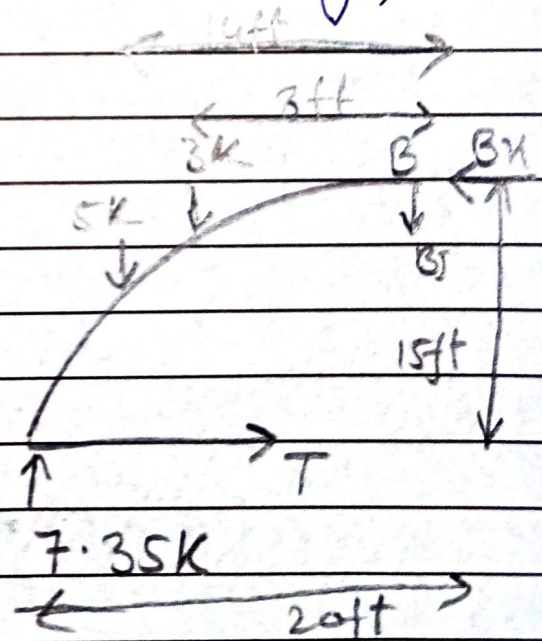 14ft
3ft
3K
B
Bx
5K
15ft
T
7.35K
20ft